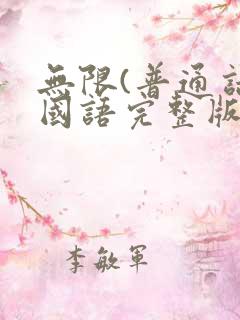 無限(普通話
國語完整版
李敏軍